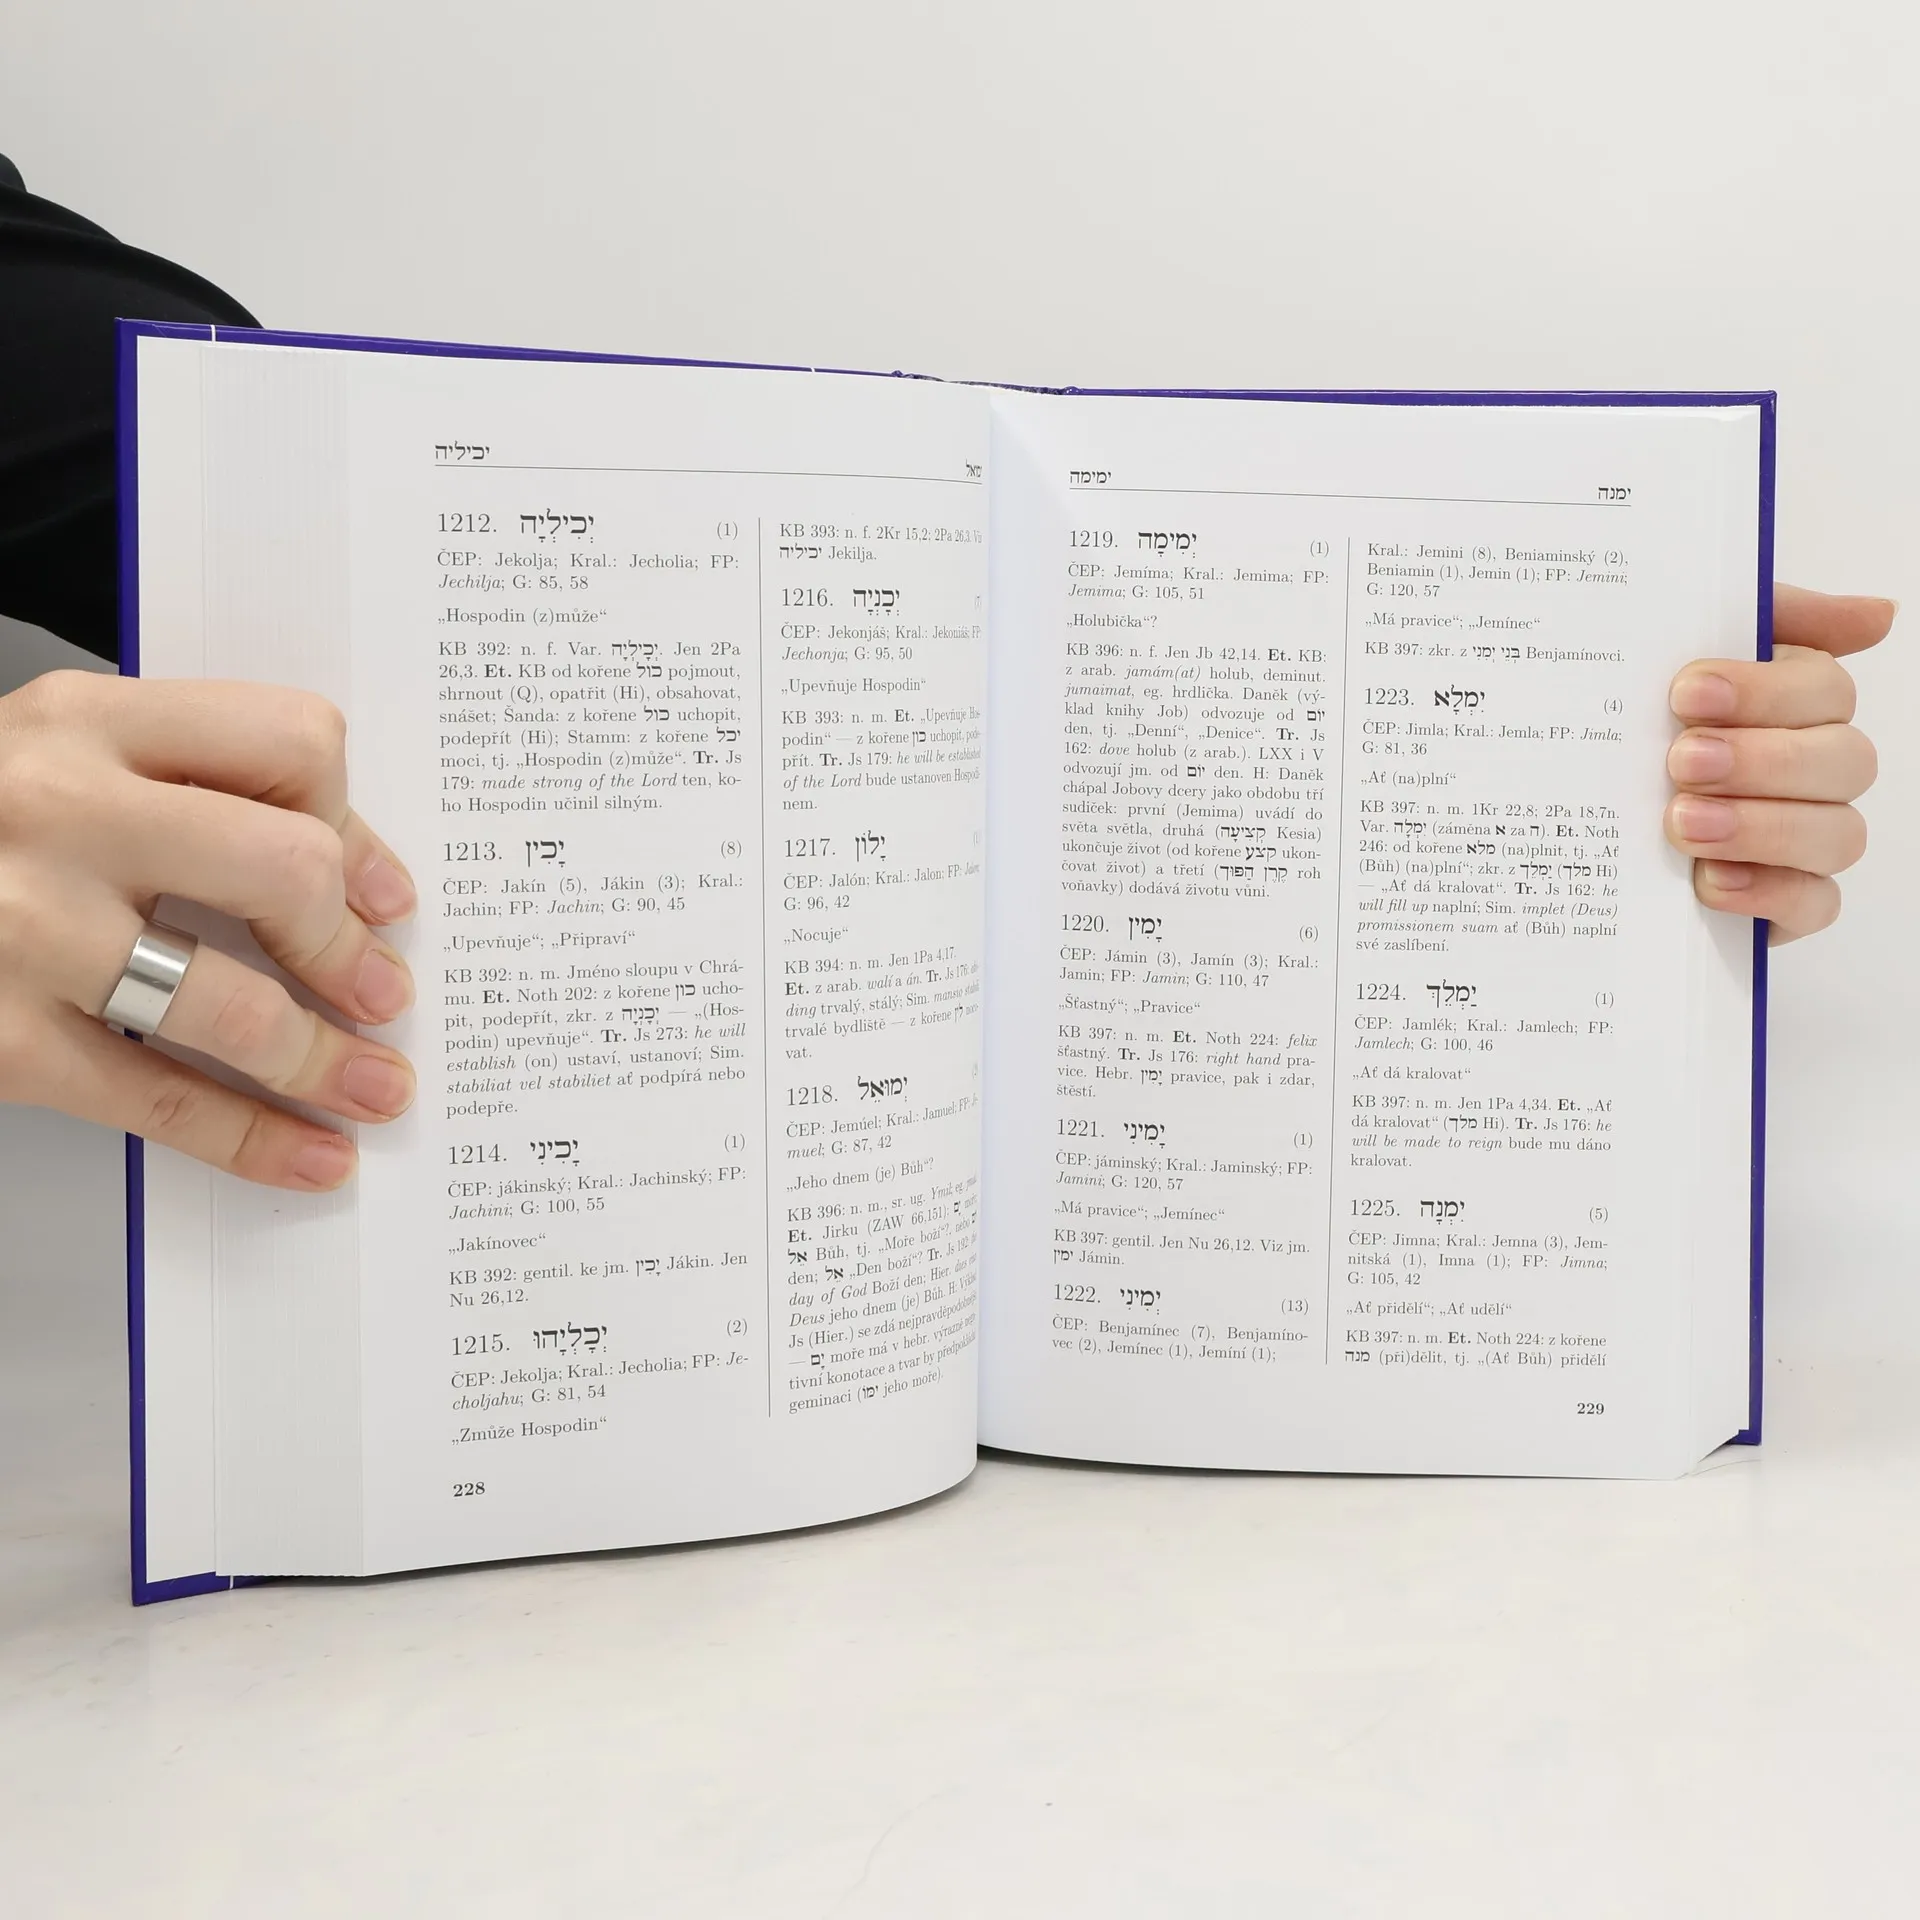 יכיליה
ימואל
1212. יְכִילְיָה (1)
ČEP: Jekolja; Kral.: Jecholia; FP:
Jechilja; G: 85, 58
„Hospodin (z)může“
KB 392: n. f. Var. יְכָילְיָה. Jen 2Pa
26,3. Et. KB od kořene כול pojmout,
shrnout (Q), opatřit (Hi), obsahovat,
snášet; Šanda: z kořene כול uchopit,
podepřít (Hi); Stamm: z kořene יכל
moci, tj. „Hospodin (z)může“. Tr. Js
179: made strong of the Lord ten, ko-
ho Hospodin učinil silným.
1213. יָכִין (8)
ČEP: Jakín (5), Jákin (3); Kral.:
Jachin; FP: Jachin; G: 90, 45
„Upevňuje“; „Připraví“
KB 392: n. m. Jméno sloupu v Chrá-
mu. Et. Noth 202: z kořene כון ucho-
pit, podepřít, zkr. z יְכָנְיָה — „(Hos-
podin) upevňuje“. Tr. Js 273: he will
establish (on) ustaví, ustanoví; Sim.
stabiliat vel stabiliet ať podpírá nebo
podepře.
1214. יָכִינִי (1)
ČEP: jákinský; Kral.: Jachinský; FP:
Jachini; G: 100, 55
„Jakínovec“
KB 392: gentil. ke jm. יָכִין Jákin. Jen
Nu 26,12.
1215. יְכָלְיָהוּ (2)
ČEP: Jekolja; Kral.: Jecholia; FP: Je-
choljahu; G: 81, 54
„Zmůže Hospodin“
228
KB 393: n. f. 2Kr 15,2; 2Pa 26,3. Viz
יכיליה Jekilja.
1216. יְכָנְיָה (7)
ČEP: Jekonjáš; Kral.: Jekoniáš; FP:
Jechonja; G: 95, 50
„Upevňuje Hospodin“
KB 393: n. m. Et. „Upevňuje Hos-
podin“ — z kořene כון uchopit, pode-
přít. Tr. Js 179: he will be established
of the Lord bude ustanoven Hospodi-
nem.
1217. יָלוֹן (1)
ČEP: Jalón; Kral.: Jalon; FP: Jalon;
G: 96, 42
„Nocuje“
KB 394: n. m. Jen 1Pa 4,17.
Et. z arab. walí a án. Tr. Js 176: abi-
ding trvalý, stálý; Sim. mansio stabilis
trvalé bydliště — z kořene לין noco-
vat.
1218. יְמוּאֵל
ČEP: Jemúel; Kral.: Jamuel; FP: Je-
muel; G: 87, 42
„Jeho dnem (je) Bůh“?
KB 396: n. m., sr. ug. Ymil; eg.
Et. Jirku (ZAW 66,151): יָם moře
אֵל Bůh, tj. „Moře boží“?, nebo
den; אֵל „Den boží“? Tr. Js 192:
day of God Boží den; Hier. dies
Deus jeho dnem (je) Bůh. H: Výklad
Js (Hier.) se zdá nejpravděpodobnější
— יָם moře má v hebr. výrazně nega-
tivní konotace a tvar by předpokládal
geminaci (ימו jeho moře).
ימימה
ימנה
1219. יְמִימָה (1)
ČEP: Jemíma; Kral.: Jemima; FP:
Jemima; G: 105, 51
„Holubička“?
KB 396: n. f. Jen Jb 42,14. Et. KB:
z arab. jamám(at) holub, deminut.
jumaimat, eg. hrdlička. Daněk (vý-
klad knihy Job) odvozuje od יוֹם
den, tj. „Denní“, „Denice“. Tr. Js
162: dove holub (z arab.). LXX i V
odvozují jm. od יוֹם den. H: Daněk
chápal Jobovy dcery jako obdobu tří
sudiček: první (Jemima) uvádí do
světa světla, druhá (קְצִיעָה Kesia)
ukončuje život (od kořene קצע ukon-
čovat život) a třetí (קֶרֶן הַפּוּךְ roh
voňavky) dodává životu vůni.
1220. יָמִין (6)
ČEP: Jámin (3), Jamín (3); Kral.:
Jamin; FP: Jamin; G: 110, 47
„Šťastný“; „Pravice“
KB 397: n. m. Et. Noth 224: felix
šťastný. Tr. Js 176: right hand pra-
vice. Hebr. יָמִין pravice, pak i zdar,
štěstí.
1221. יָמִינִי (1)
ČEP: jáminský; Kral.: Jaminský; FP:
Jamini; G: 120, 57
„Má pravice“; „Jemínec“
KB 397: gentil. Jen Nu 26,12. Viz jm.
ימין Jámin.
1222. יְמִינִי (13)
ČEP: Benjamínec (7), Benjamíno-
vec (2), Jemínec (1), Jemíní (1);
Kral.: Jemini (8), Beniaminský (2),
Beniamin (1), Jemin (1); FP: Jemini;
G: 120, 57
„Má pravice“; „Jemínec“
KB 397: zkr. z בְּנֵי יְמִנִי Benjamínovci.
1223. יִמְלָא (4)
ČEP: Jimla; Kral.: Jemla; FP: Jimla;
G: 81, 36
„Ať (na)plní“
KB 397: n. m. 1Kr 22,8; 2Pa 18,7n.
Var. יִמְלָה (záměna א za ה). Et. Noth
246: od kořene מלא (na)plnit, tj. „Ať
(Bůh) (na)plní“; zkr. z יַמְלֵךְ (מלך Hi)
— „Ať dá kralovat“. Tr. Js 162: he
will fill up naplní; Sim. implet (Deus)
promissionem suam ať (Bůh) naplní
své zaslíbení.
1224. יַמְלֵךְ (1)
ČEP: Jamlék; Kral.: Jamlech; FP:
Jamlech; G: 100, 46
„Ať dá kralovat“
KB 397: n. m. Jen 1Pa 4,34. Et. „Ať
dá kralovat“ (מלך Hi). Tr. Js 176: he
will be made to reign bude mu dáno
kralovat.
1225. יִמְנָה (5)
ČEP: Jimna; Kral.: Jemna (3), Jem-
nitská (1), Imna (1); FP: Jimna;
G: 105, 42
„Ať přidělí“; „Ať udělí“
KB 397: n. m. Et. Noth 224: z kořene
מנה (při)dělit, tj. „(Ať Bůh) přidělí
229